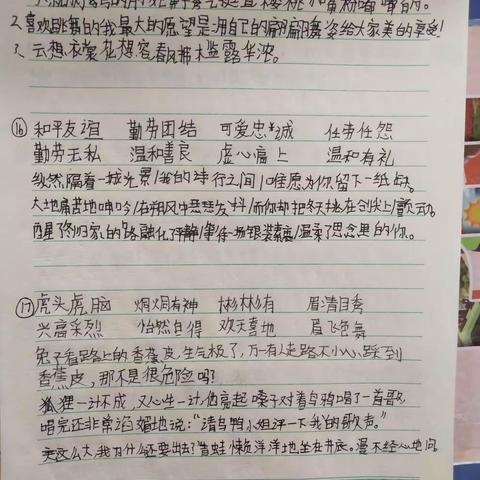 2.喜欢跳舞的我最大的愿望是用自己的翩翩舞姿给大家美的享受!
3、云想衣裳花想容春风拂槛露华浓。
⑯ 和平友谊 勤劳团结 可爱忠诚 任劳任怨
勤劳无私 温和善良 虚心 上 温和有礼
纵然隔着一城光景/我的诗行之间/唯愿为你留下一纸
大地痛苦地呻吟/在朔风中 发抖/而你却把冬天挑在剑尖上/
归家的 路融化了 /静 待一场银装素裹/温柔了思念里的你。
⑰ 虎头虎脑 炯炯有神 彬彬有 眉清目秀
兴高采烈 怡然自得 欢天喜地 眉飞色舞
兔子看路上的香蕉皮,生气极了,万一有人走路不小心踩到
香蕉皮,那不是很危险吗?
狐狸一计不成,又心生一计,他亮起嗓子对着乌鸦唱了一首歌,
唱完还非常谄媚地说:“请乌鸦小姐评一下我的歌声。”
这么大,我为什么还要出去?青蛙懒洋洋地坐在井底。漫不经心地问。